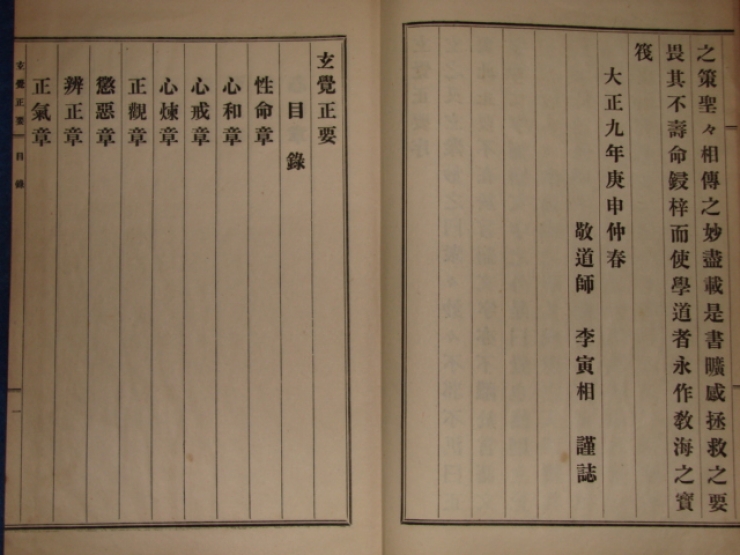 之策聖々相傳之妙盡載是書曠感拯救之要
畏其不壽命鋟梓而使學道者永作敎海之寶
筏
大正九年庚申仲春
敬道師 李寅相 謹誌
玄覺正要
目錄
性命章
心和章
心戒章
心煉章
正觀章
懲惡章
辨正章
正氣章
玄覺正要 目錄 一